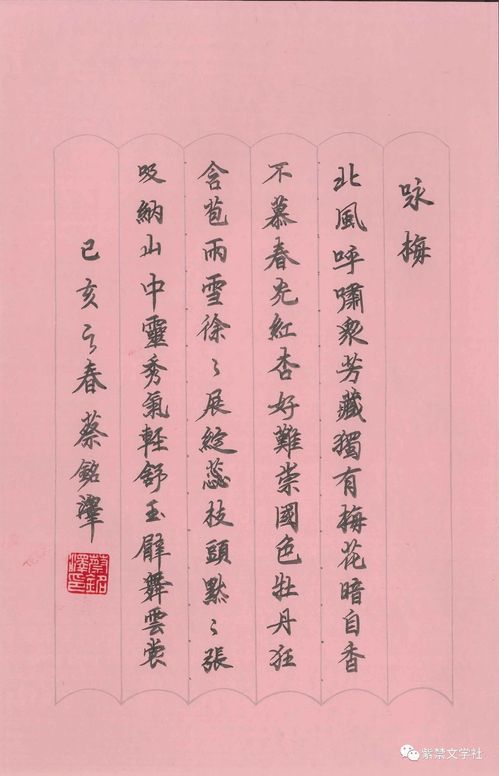 咏梅
北風呼嘯衆芳藏獨有梅花暗自香
不慕春光紅杏好難崇國色牡丹狂
含苞雨雪徐〻展綻蕊枝頭默〻張
吸納山中靈秀氣輕舒玉臂舞雲裳
己亥之春蔡銘澤
蔡銘澤印
紫禁文学社